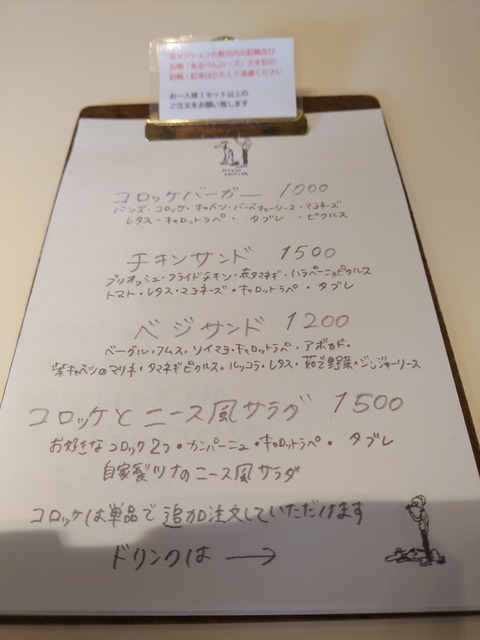 当マンションの敷地内の駐輪及び
お隣「あるぺんローズ」さま前の
駐輪・駐車はかたくご遠慮ください
お一人様1セット以上の
ご注文をお願い致します
コロッケバーガー 1000
バンズ・コロッケ・キャベツ・バーベキューソース・マヨネーズ
レタス・キャロットラペ・タブレ・ピクルス
チキンサンド 1500
ブリオッシュ・フライドチキン・赤タマネギ・ハラペーニョピクルス
トマト・レタス・マヨネーズ・キャロットラペ・タブレ
ベジサンド 1200
ベーグル・フムス・ソイマヨ・キャロットラペ・アボカド・
紫キャベツのマリネ・タマネギピクルス・ルッコラ・レタス・茹で野菜・ジンジャーソース
コロッケとニース風サラダ 1500
お好きなコロッケ2つ・カンパーニュ・キャロットラペ・タブレ
自家製ツナのニース風サラダ
コロッケは単品で追加注文していただけます
ドリンクは →